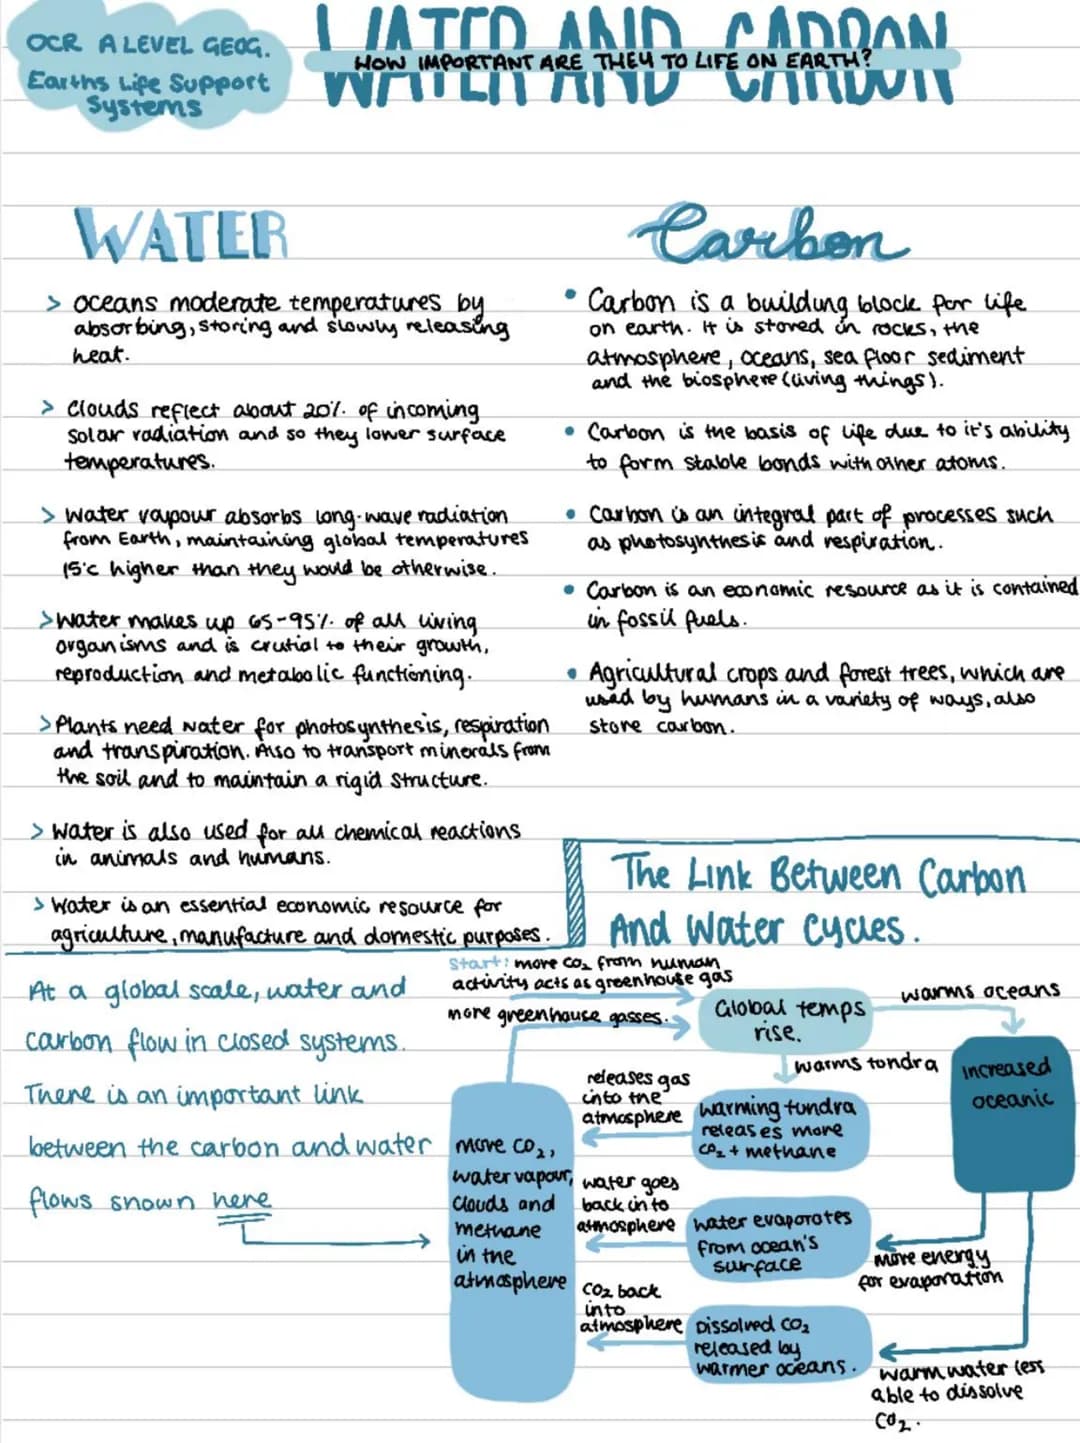 OCR A LEVEL GEOG.
Earths Life Support
Systems
WATER AND CARBON
HOW IMPORTANT ARE THEY TO LIFE ON EARTH?
WATER
> oceans moderate temperatures by
absorbing, storing and slowly releasing
heat.
> Clouds reflect about 20% of incoming
solar radiation and so they lower surface
temperatures.
> Water vapour absorbs long-wave radiation
from Earth, maintaining global temperatures
15°c higher than they would be otherwise.
> Water makes up 65-95% of all living
organisms and is crutial to their growth,
reproduction and metabolic functioning.
> Plants need water for photosynthesis, respiration
and transpiration. Also to transport minerals from
the soil and to maintain a rigid structure.
> Water is also used for all chemical reactions
in animals and humans.
> Water is an essential economic resource for
agriculture, manufacture and domestic purposes.
Carbon
• Carbon is a building block for life
on earth. It is stored in rocks, the
atmosphere, oceans, sea floor sediment
and the biosphere (living things).
• Carbon is the basis of life due to it's ability
to form stable bonds with other atoms.
• Carbon is an integral part of processes such
as photosynthesis and respiration.
• Carbon is an economic resource as it is contained
in fossil fuels.
• Agricultural crops and forest trees, which are
used by humans in a variety of ways, also
store carbon.
The Link Between Carbon
And Water Cycles.
At a global scale, water and
carbon flow in closed systems.
There is an important link
between the carbon and water
flows shown here
Start: more CO₂ from human
activity acts as greenhouse gas
more greenhouse gasses.
Global temps
rise.
warms oceans
warms tondra
increased
oceanic
releases gas
into the
atmosphere
warming tundra
releases more
CO₂ + methane
more CO₂,
water vapour,
clouds and
methane
in the
atmosphere
water goes
back into
atmosphere
water evaporates
from ocean's
surface
more energy
for evaporation
CO₂ back
into
atmosphere
Dissolved CO₂
released by
warmer oceans.
warm water less
able to dissolve
CO₂.